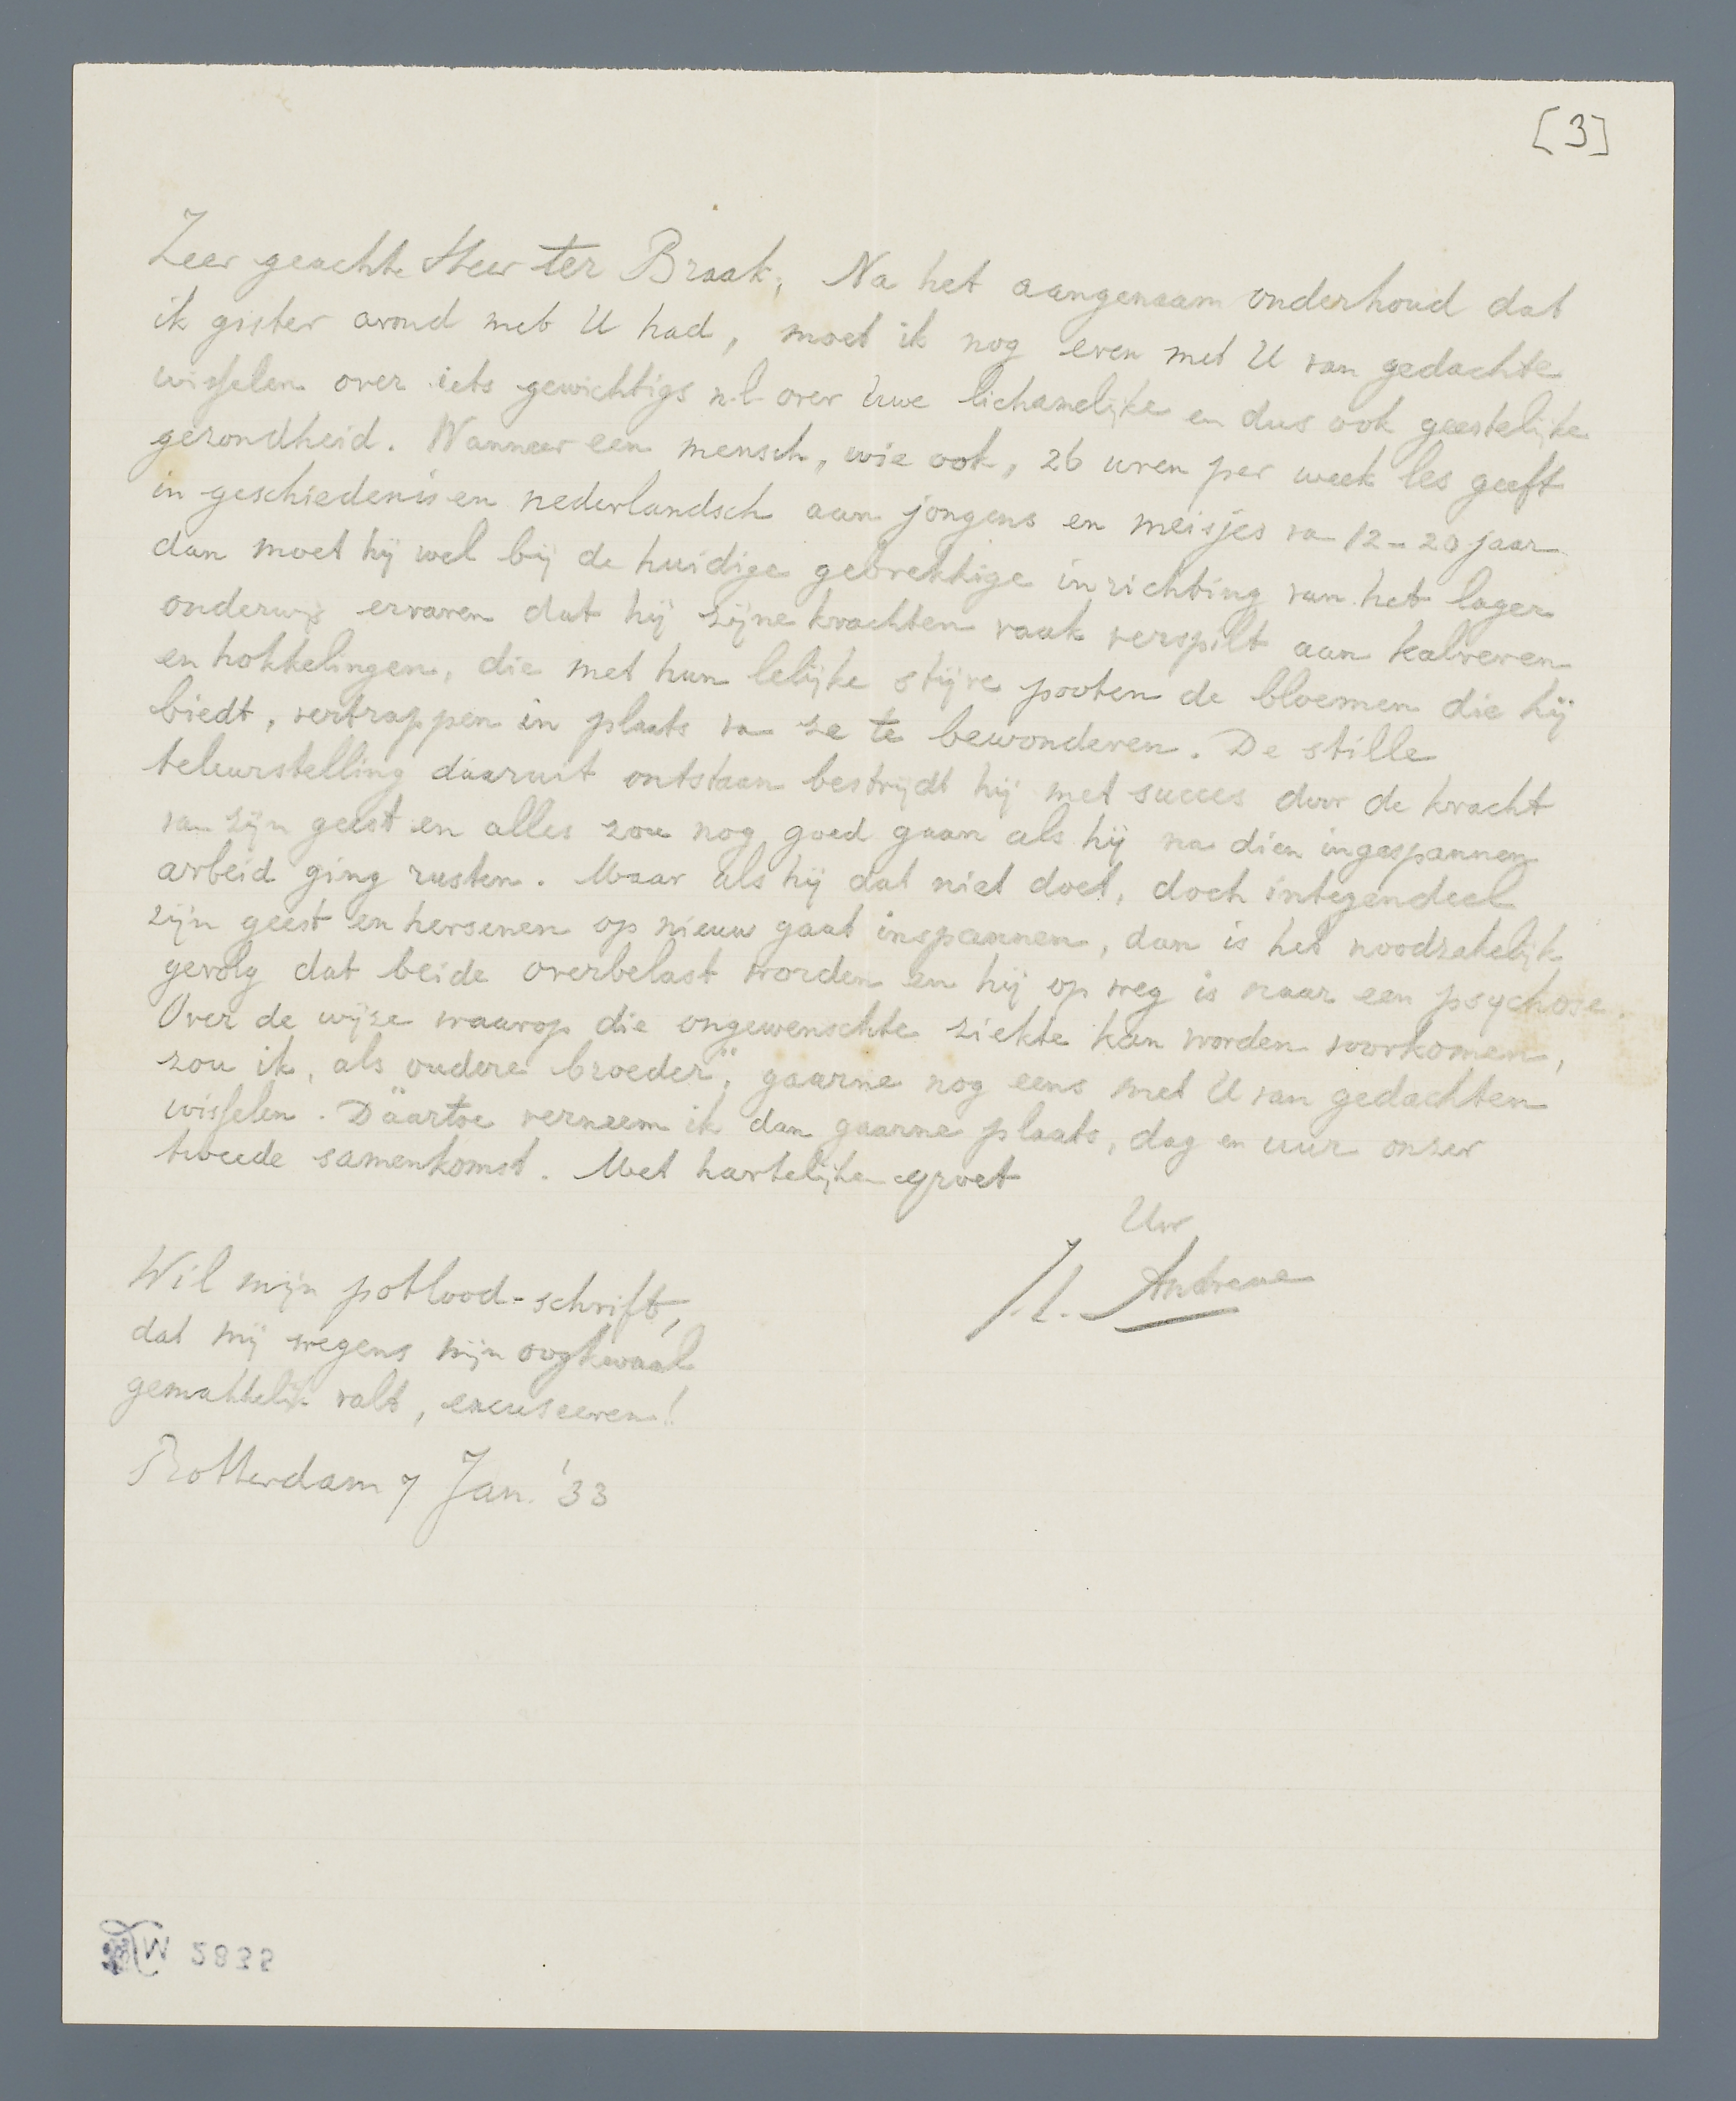 [3]
Zeer geachte Heer ter Braak, Na het aangenaam onderhoud dat
ik gister avond met U had, moet ik nog even met U van gedachte
wisselen over iets gewichtigs n.l. over Uwe lichamelijke en dus ook geestelijke
gezondheid. Wanneer een mensch, wie ook, 26 uren per week les geeft
in geschiedenis en nederlandsch aan jongens en meisjes va 12-20 jaar
dan moet hij wel bij de huidige gebrekkige inrichting van het lager
onderwijs ervaren dat hij zijne krachten vaak verspilt aan kalveren
en hokkelingen, die met hun lelijke stijve pooten de bloemen die hij
biedt, vertrappen in plaats va ze te bewonderen. De stille
teleurstelling daaruit ontstaan bestrijdt hij met succes door de kracht
van zijn geest en alles zou nog goed gaan als hij na dien ingespannen
arbeid ging rusten. Maar als hij dat niet doet, doch integendeel
zijn geest en hersenen op nieuw gaat inspannen, dan is het noodzakelijk
gevolg dat beide overbelast worden en hij op weg is naar een psychose.
Over de wijze waarop die ongewenschte ziekte kan worden voorkomen,
zou ik, als oudere broeder", gaarne nog eens met U van gedachten
wisselen. Däartoe verneem ik dan gaarne plaats, dag en uur onzer
tweede samenkomst. Met hartelijken groet
Uw
Andreae
Wil mijn potlood-schrift,
dat mij wegens mijn oogkwaal
gemakkelijk valt, excuseeren!
Rotterdam 7 Jan. '33
2835